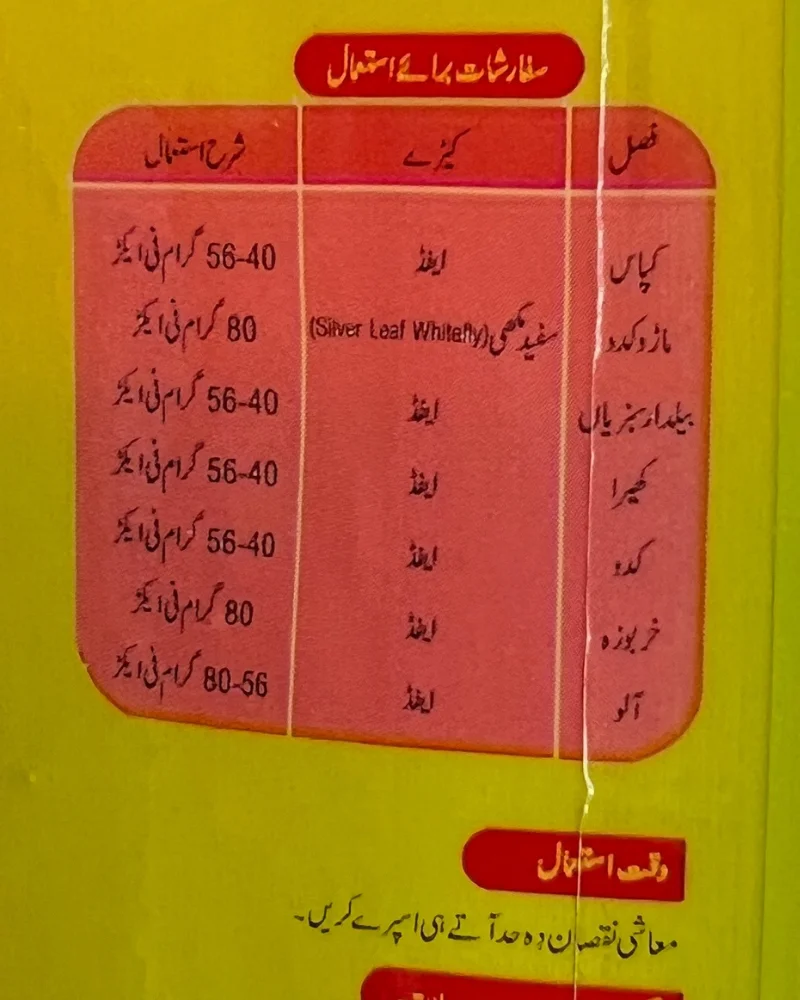 سفارشات برائے استعمال
فصل کیڑے شرح استعمال
کپاس ایفڈ 56-40 گرام فی ایکڑ
ماڑو کدو سفید مکھی (Silver Leaf Whitefly) 80 گرام فی ایکڑ
بیلدار سبزیاں ایفڈ 56-40 گرام فی ایکڑ
کھیرا ایفڈ 56-40 گرام فی ایکڑ
کدو ایفڈ 56-40 گرام فی ایکڑ
خربوزہ ایفڈ 80 گرام فی ایکڑ
آلو ایفڈ 80-56 گرام فی ایکڑ
وقت استعمال
معاشی نقصان دہ حد آتے ہی اسپرے کریں۔